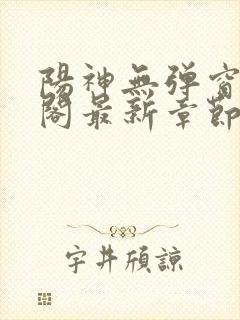 陽神無彈窗
閣最新章節
宇井頎諒